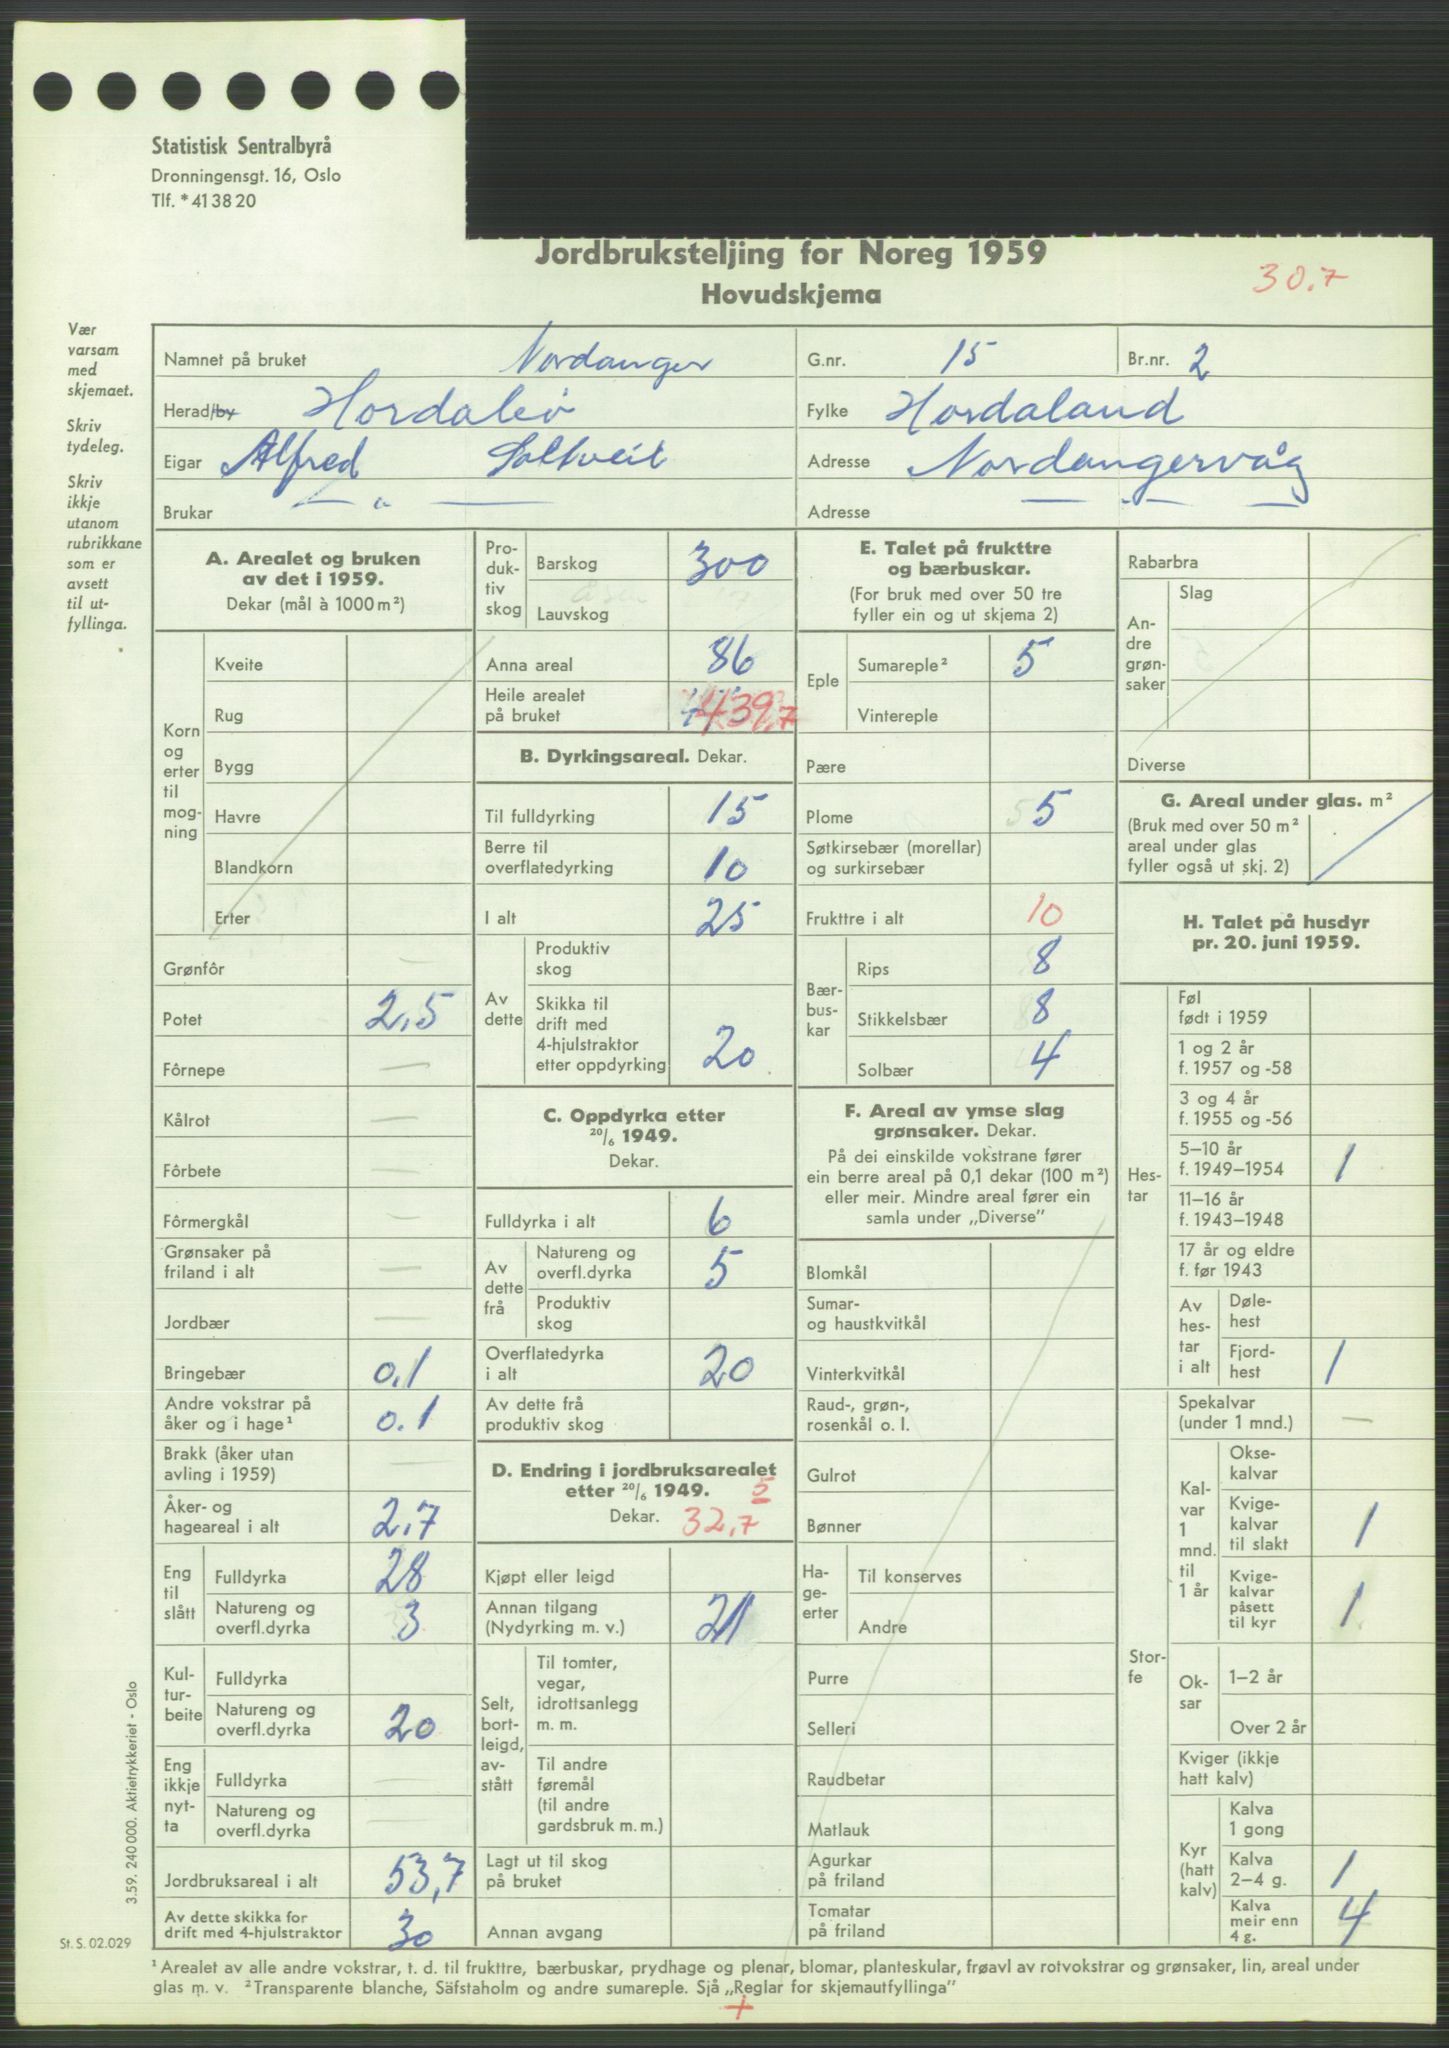 Statistisk Sentralbyrå
Dronningensgt. 16, Oslo
Tlf. * 41 38 20
Jordbruksteljing for Noreg 1959
Hovudskjema
30.7
Vær
varsam
med
skjemaet.
Skriv
tydeleg.
Skriv
ikkje
utanom
rubrikkane
som er
avsett
til ut-
fyllinga.
Namnet på bruket Nordanger G.nr. 15 Br.nr. 2
Herad/by Hordalei Fylke Hordaland
Eigar Alfred Soltveit Adresse Nordangervåg
Brukar — " — Adresse — " —
A. Arealet og bruken
av det i 1959.
Dekar (mål à 1000 m²)
Korn og erter til mog-ning
Kveite
Rug
Bygg
Havre
Blandkorn
Erter
Grønfôr —
Potet 2,5
Fôrnepe —
Kålrot —
Fôrbete —
Fôrmergkål —
Grønsaker på
friland i alt —
Jordbær —
Bringebær 0,1
Andre vokstrar på
åker og i hage¹ 0.1
Brakk (åker utan
avling i 1959) —
Åker- og
hageareal i alt 2,7
Eng til slått
Fulldyrka 28
Natureng og
overfl.dyrka 3
Kul-tur-beite
Fulldyrka
Natureng og
overfl.dyrka 20
Eng ikkje nyt-ta
Fulldyrka —
Natureng og
overfl.dyrka —
Jordbruksareal i alt 53,7
Av dette skikka for
drift med 4-hjulstraktor 30
Pro-duk-tiv skog
Barskog 300
Lauvskog
Anna areal 86
Heile arealet
på bruket 439,7
B. Dyrkingsareal. Dekar.
Til fulldyrking 15
Berre til
overflatedyrking 10
I alt 25
Av dette
Produktiv
skog
Skikka til
drift med
4-hjulstraktor
etter oppdyrking 20
C. Oppdyrka etter
20/6 1949.
Dekar.
Fulldyrka i alt 6
Av dette frå
Natureng og
overfl.dyrka 5
Produktiv
skog
Overflatedyrka
i alt 20
Av dette frå
produktiv skog
D. Endring i jordbruksarealet
etter 20/6 1949. 5
Dekar. 32,7
Kjøpt eller leigd
Annan tilgang
(Nydyrking m. v.) 21
Selt, bort-leigd, av-stått
Til tomter,
vegar,
idrottsanlegg
m. m.
Til andre
føremål
(til andre
gardsbruk m. m.)
Lagt ut til skog
på bruket
Annan avgang
E. Talet på frukttre
og bærbuskar.
(For bruk med over 50 tre
fyller ein og ut skjema 2)
Eple
Sumareple² 5
Vintereple
Pære
Plome 5
Søtkirsebær (morellar)
og surkirsebær
Frukttre i alt 10
Bær-bus-kar
Rips 8
Stikkelsbær 8
Solbær 4
F. Areal av ymse slag
grønsaker. Dekar.
På dei einskilde vokstrane fører
ein berre areal på 0,1 dekar (100 m²)
eller meir. Mindre areal fører ein
samla under „Diverse”
Blomkål
Sumar-
og haustkvitkål
Vinterkvitkål
Raud-, grøn-,
rosenkål o. l.
Gulrot
Bønner
Ha-ge-erter
Til konserves
Andre
Purre
Selleri
Raudbetar
Matlauk
Agurkar
på friland
Tomatar
på friland
Rabarbra
An-dre grøn-saker
Slag
Diverse
G. Areal under glas. m²
(Bruk med over 50 m²
areal under glas
fyller også ut skj. 2)
H. Talet på husdyr
pr. 20. juni 1959.
Hes-tar
Føl
født i 1959
1 og 2 år
f. 1957 og -58
3 og 4 år
f. 1955 og -56
5–10 år
f. 1949–1954 1
11–16 år
f. 1943–1948
17 år og eldre
f. før 1943
Av hes-tar i alt
Døle-
hest
Fjord-
hest 1
Stor-fe
Spekalvar
(under 1 mnd.) —
Kal-var 1 mnd. til 1 år
Okse-
kalvar
Kvige-
kalvar
til slakt 1
Kvige-
kalvar
påsett
til kyr 1
Ok-sar
1–2 år
Over 2 år
Kviger (ikkje
hatt kalv)
Kyr (hatt kalv)
Kalva
1 gong
Kalva
2–4 g. 1
Kalva
meir enn
4 g. 4
3.59. 240 000. Aktietrykkeriet - Oslo
St. S. 02.029
¹ Arealet av alle andre vokstrar, t. d. til frukttre, bærbuskar, prydhage og plenar, blomar, planteskular, frøavl av rotvokstrar og grønsaker, lin, areal under
glas m. v. ² Transparente blanche, Säfstaholm og andre sumareple. Sjå „Reglar for skjemautfyllinga”
+